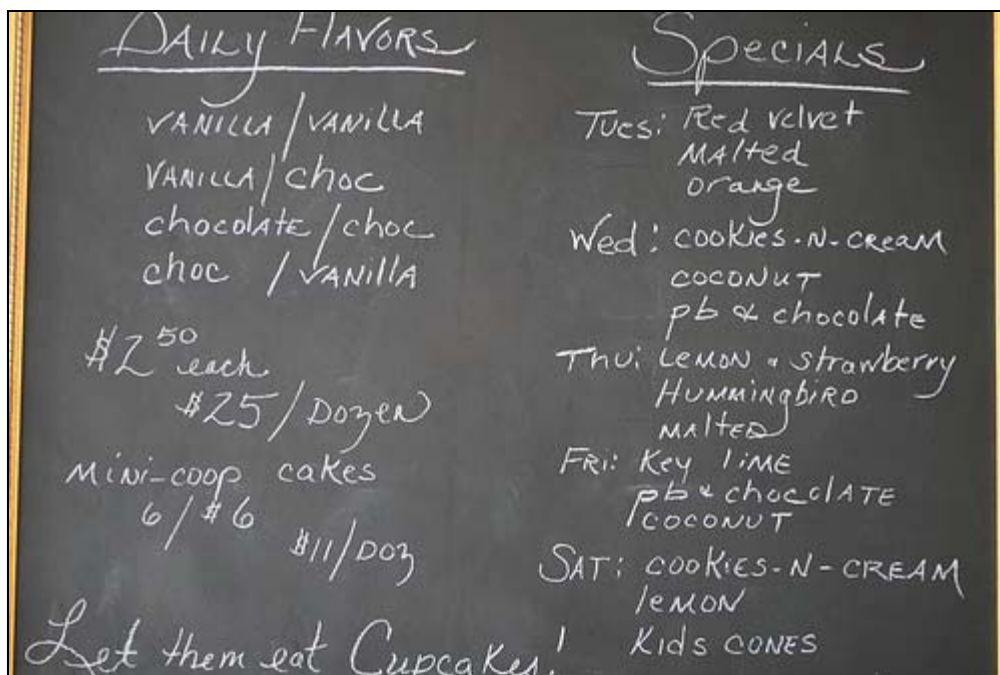 DAILY FLAVORS
VANILLA / VANILLA
VANILLA / choc
chocolATE / choc
choc / VANILLA
$2 50 each
$25 / DOZEN
MiNi-coop cakes
6 / $6
$11/DOZ
Let them eat Cupcakes!
SPECIALS
Tues: Red velvet
MAlted
orange
Wed: cookies-N-CREAM
COCONUT
pb & chocolAte
Thu: LEMON & strawberry
HUMMINgbiRD
MAlTED
FRI: Key liME
pb & chocolATE
COCONUT
SAT: COOKIES-N-CREAM
leMON
Kids CONES